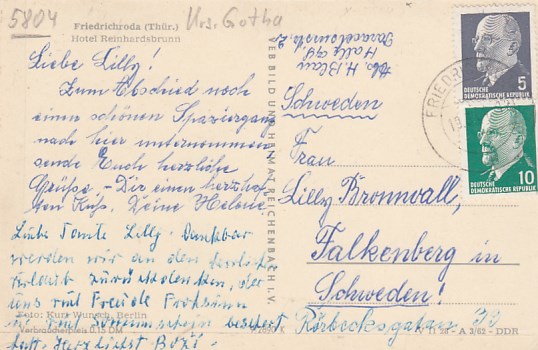 5804
Krs. Gotha
Friedrichroda (Thür.)
Hotel Reinhardsbrunn
Liebe Lilly!
Zum Abschied noch
einen schönen Spaziergang
nach hier unternommen
sende Euch herzliche
Grüße. - Dir einen herzhaf-
ten Kuß. Deine Helene
Liebe Tante Lilly - Dankbar
werden wir an den
Urlaub zurückdenken, der
uns mit Freude Frohsinn
und mit Sonnenschein beschert
hat. Herzlichst
Foto: Kurt Wunsch, Berlin
Verbraucherpreis 0,15 DM
BILD UND HEIMAT REICHENBACH I. V.
Abs. H. Blau
Halle
Schweden
Frau
Lilly Bronnvall,
Falkenberg in
Schweden!
Rörbecksgatan 33
A 3/62 - DDR
5
DEUTSCHE
DEMOKRATISCHE REPUBLIK
10
DEUTSCHE
DEMOKRATISCHE REPUBLIK
FRIEDR